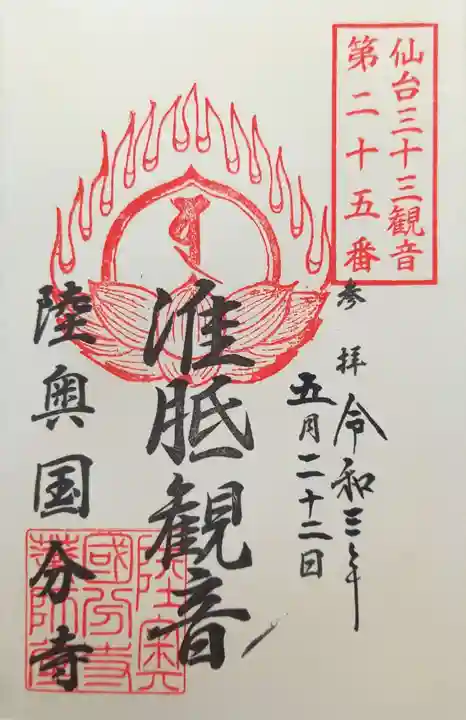 仙台三十三観音
第二十五番
参拝 令和三年
五月二十二日
准胝観音
陸奥国分寺
陸奥
國分寺
薬師堂